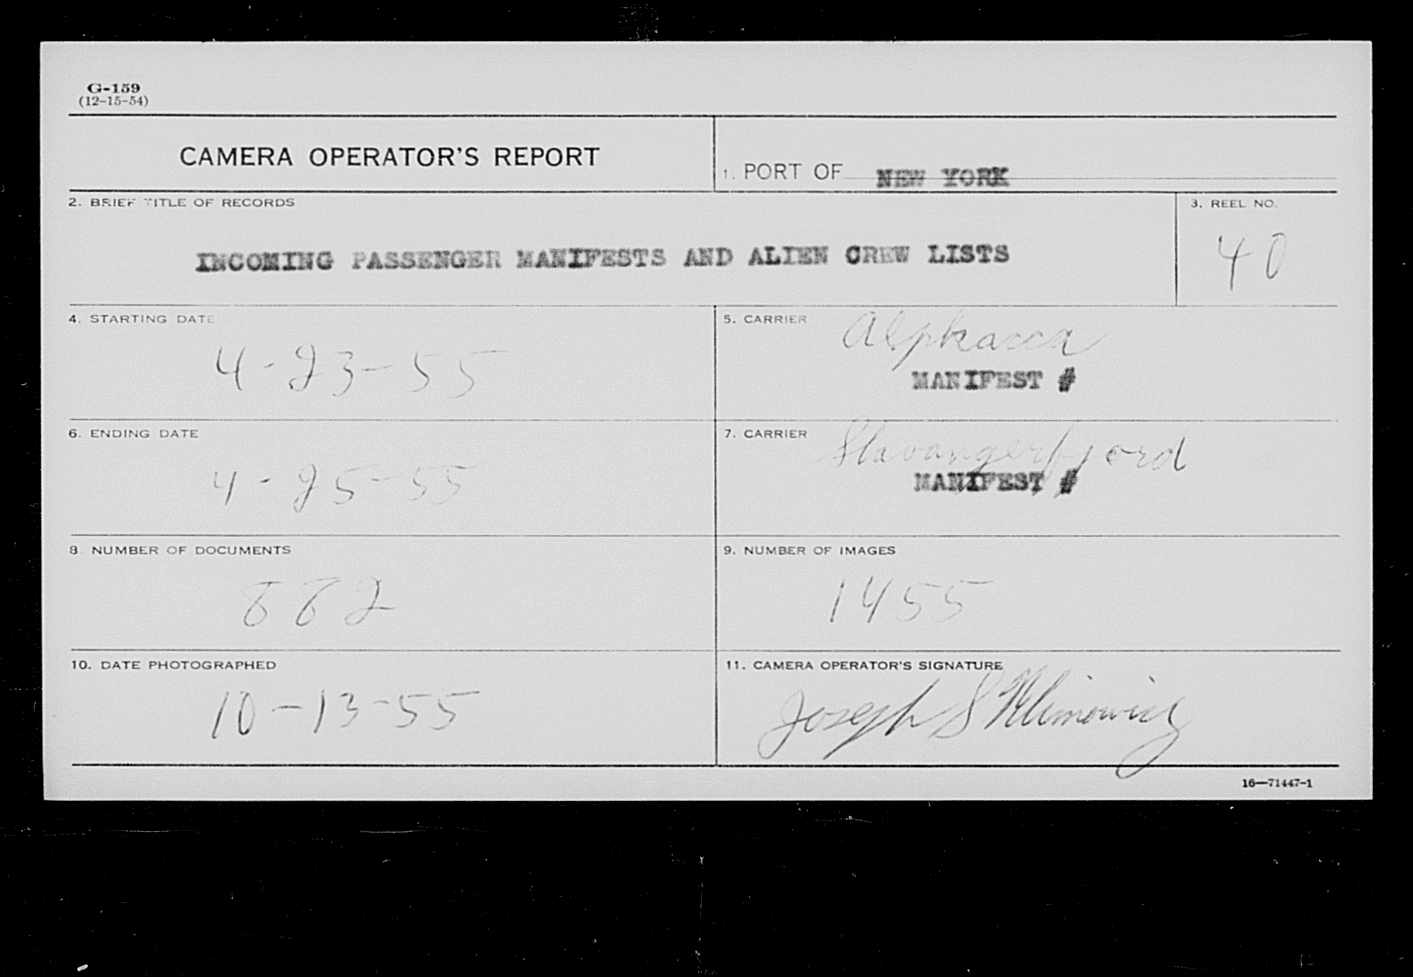 G-159
(12-15-54)
CAMERA OPERATOR'S REPORT
1. PORT OF NEW YORK
2. BRIEF TITLE OF RECORDS
INCOMING PASSENGER MANIFESTS AND ALIEN CREW LISTS
3. REEL NO.
40
4. STARTING DATE
4-23-55
5. CARRIER
Alphacca
MANIFEST #
6. ENDING DATE
4-25-55
7. CARRIER
Stavangerfjord
MANIFEST #
8. NUMBER OF DOCUMENTS
882
9. NUMBER OF IMAGES
1455
10. DATE PHOTOGRAPHED
10-13-55
11. CAMERA OPERATOR'S SIGNATURE
Joseph S Klimowicz
16—71447-1